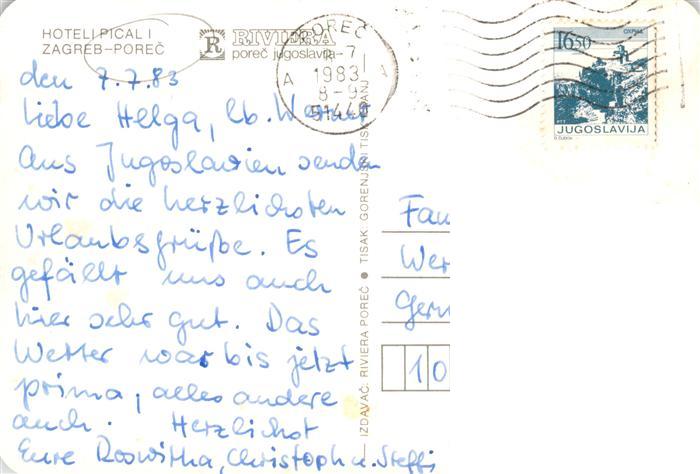 HOTELI PICAL I
ZAGREB–POREČ
R
RIVIERA
poreč jugoslavija
POREČ
1983
8-9
A
A
51440
16,50
OHRID
PTT
JUGOSLAVIJA
den 7.7.83
Liebe Helga, lb. Werner
Aus Jugoslavien senden
wir die herzlichsten
Urlaubsgrüße. Es
gefällt uns auch
hier sehr gut. Das
Wetter war bis jetzt
prima, alles andere
auch. Herzlichst
Eure Roswitha, Christoph u. Steffi
IZDAVAČ: RIVIERA POREČ ● TISAK: GORENJSKI TISK, KRANJ
Fam
Wer
Germ
10